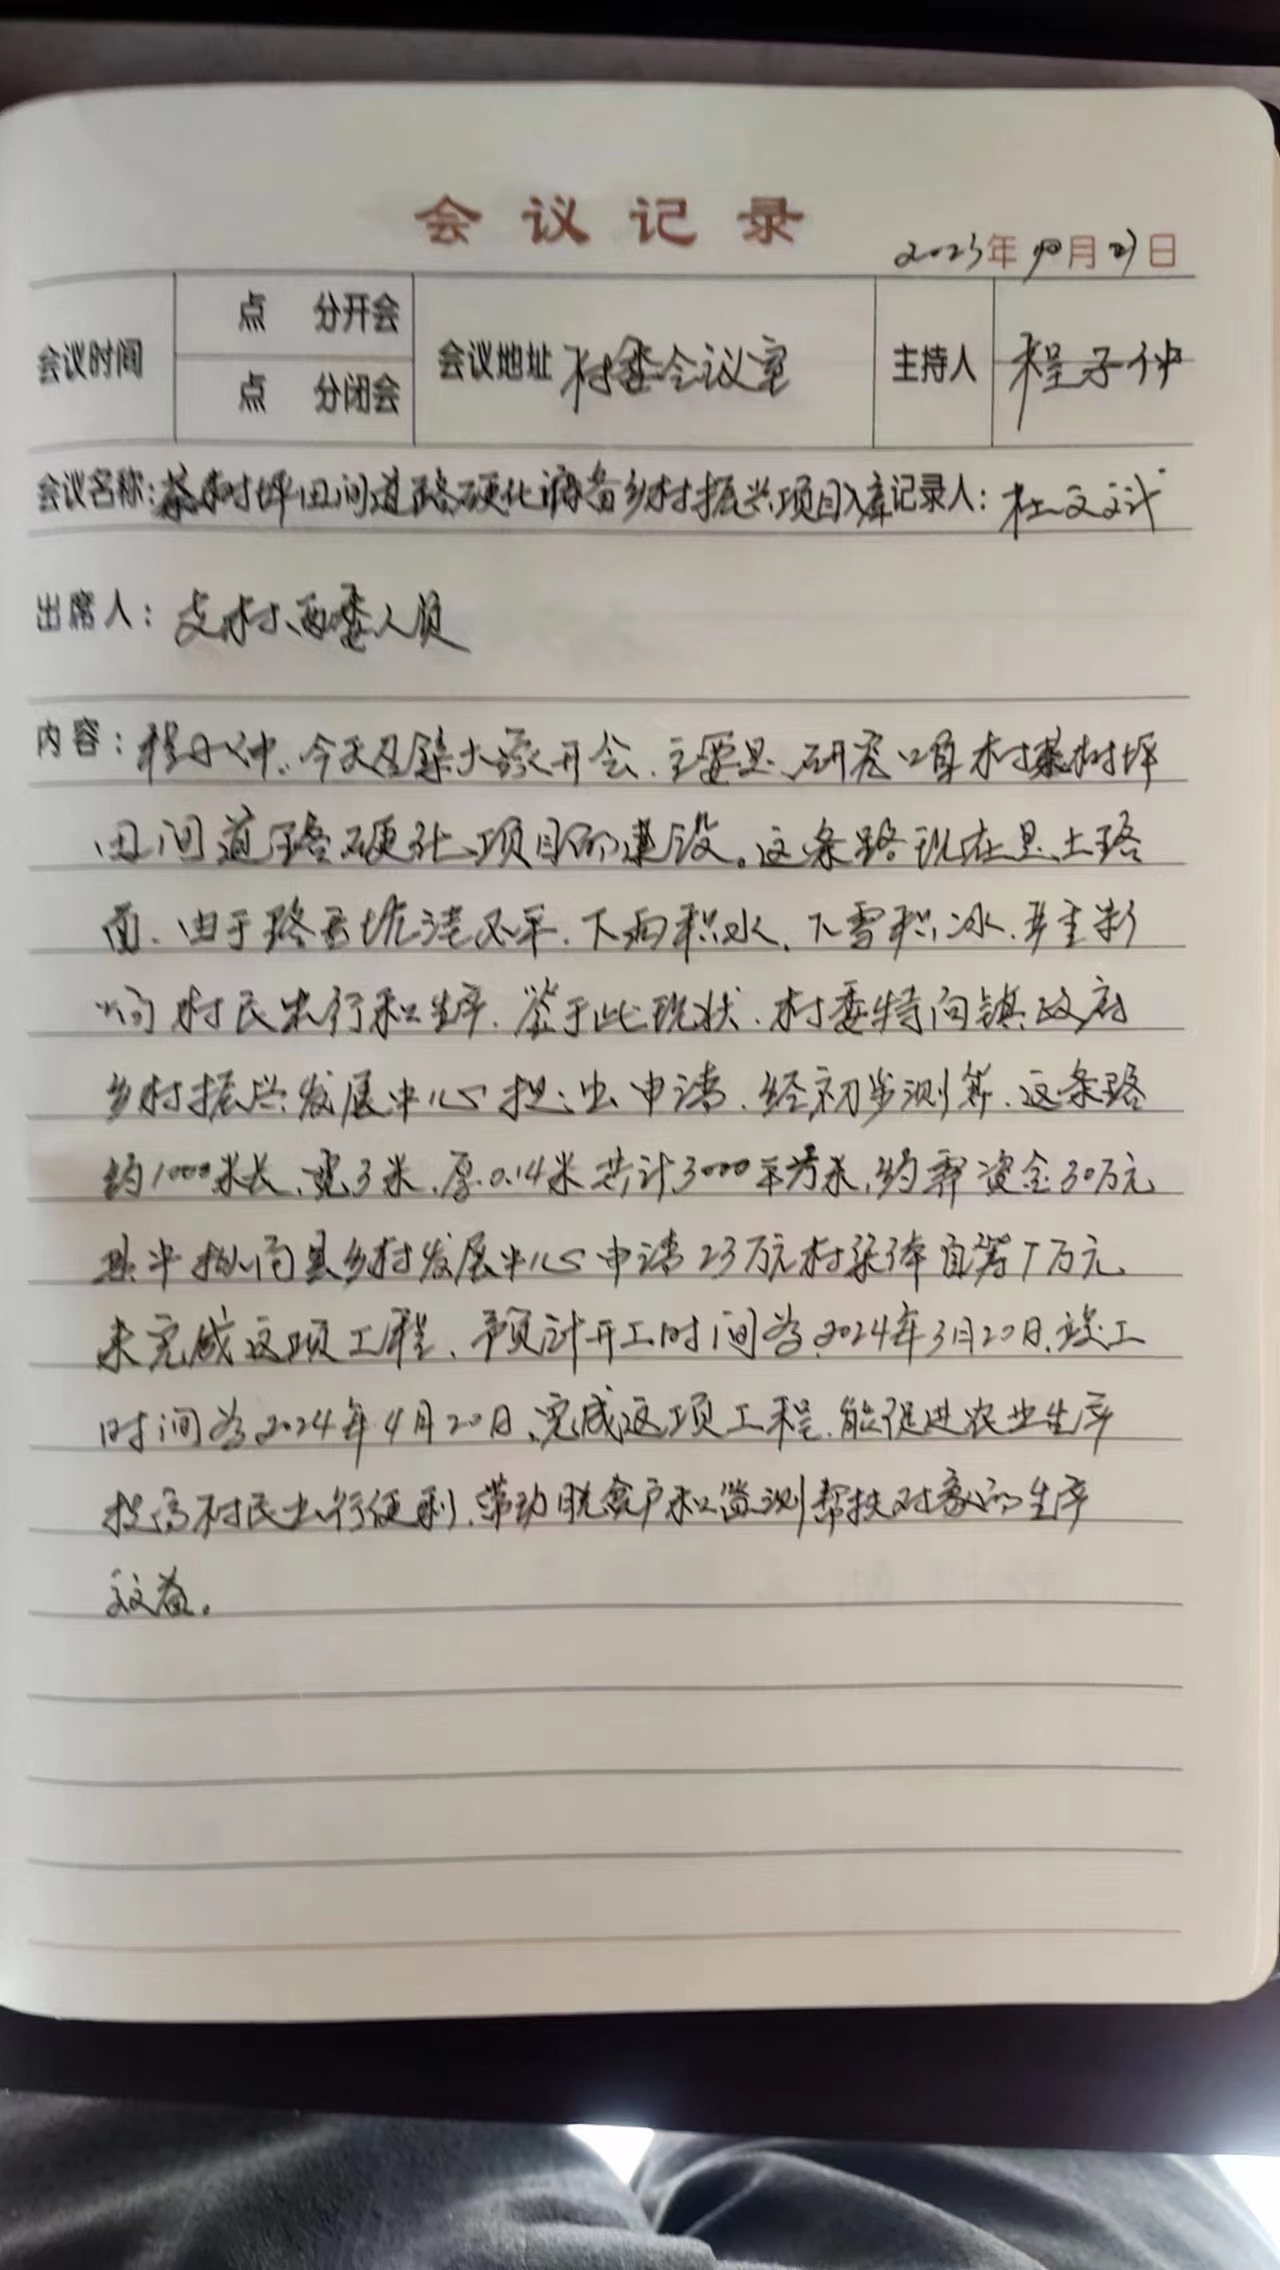 会议记录
2023年10月27日
会议时间 点 分开会 会议地址 村委会议室 主持人 程子仲
点 分闭会
会议名称:茶树坪田间道路硬化储备乡村振兴项目入库 记录人:杜文斌
出席人:支村、两委人员
内容:程子仲:今天召集大家开会、主要是研究咱村茶树坪
田间道路硬化项目的建设。这条路现在是土路
面、由于路面坑洼不平、下雨积水、下雪积冰、严重影
响村民出行和生产、鉴于此现状、村委特向镇政府
乡村振兴发展中心提出申请、经初步测算、这条路
约1000米长、宽3米、厚0.14米共计3000平方米,约需资金30万元
其中拟向县乡村发展中心申请23万元村集体自筹7万元
来完成这项工程、预计开工时间为2024年3月20日、竣工
时间为2024年4月20日、完成这项工程、能促进农业生产
提高村民出行便利、带动脱贫户和监测帮扶对象的生产
效益。